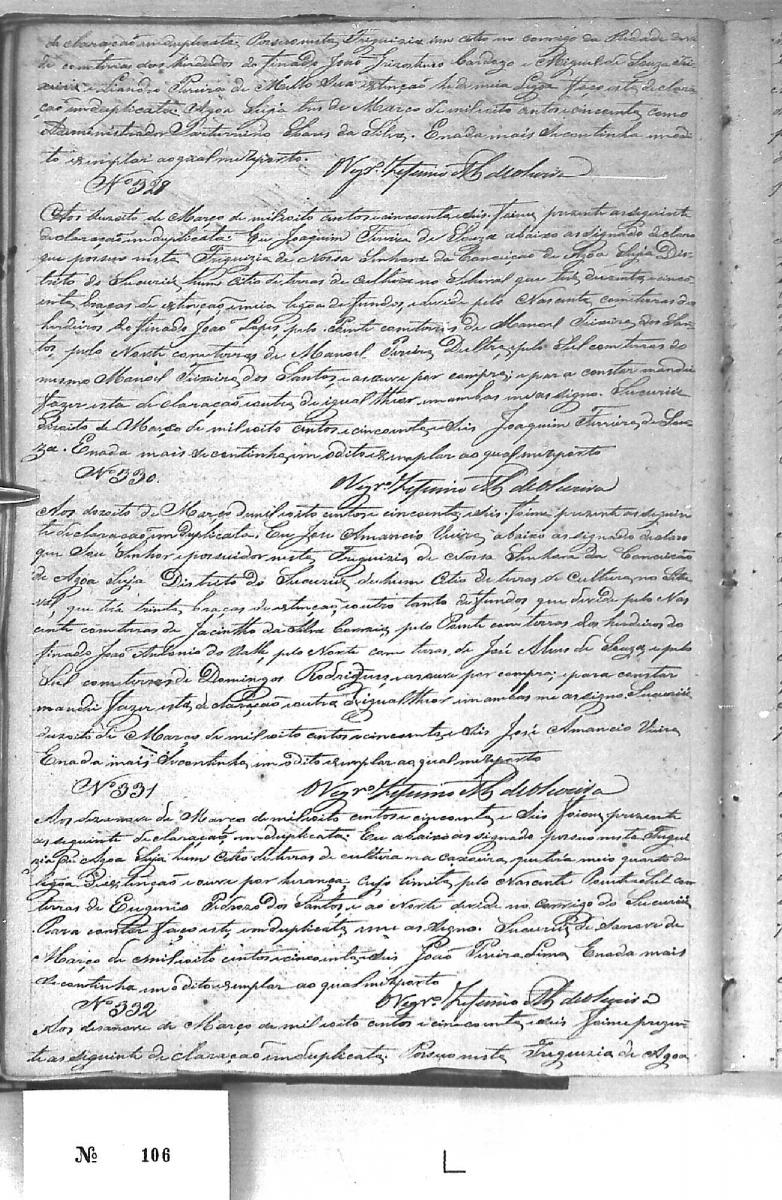 declaração em duplicata. Possuo nesta Freguizia um citio no corrego da
com terras dos herdeiros do finado João Cardozo e Miguel de Souza
e Leandro Pereira de Mello Sua extenção he de meia Legoa Faço esta declara
ção em duplicata. Agoa Suja de Março de mil oito centos e cincoenta como
Administrador da Silva. E nada mais se continha no di
to exemplar ao qual me reporto. O Vigr.º
Nº 328
Aos dezoito de Março de mil oito centos e cincoenta e seis. Foi me prezente a seguinte
declaração em duplicata. Eu Joaquim Ferreira de Souza abaixo assignado declaro
que possuo nesta Freguizia de Nossa Senhora da Conceição de Agoa Suja Dis
trito do Sucuriu hum Citio de terras de Cultura no que terá duzentas e cinco
enta braças de extenção e meia legoa de fundos, e devide pelo Nascente com terras dos
herdeiros do finado João Lopes, pelo Poente com terras de Manoel Teixeira dos San
tos, pelo Norte com terras de Manoel Pereira e pelo Sul com terras do
mesmo Manoel Teixeira dos Santos e as ouve por compra; e para constar mandei
fazer esta declaração e outra de igual theor em ambas me assigno. Sucuriu
Dezoito de Março de mil oito centos e cincoenta e Seis Joaquim Ferreira de Sou
za. E nada mais se continha em o dito exemplar ao qual me reporto
Nº 330. O Vigr.º
Aos dezoito de Março de mil oito centos e cincoenta e seis. Foi me prezente a seguin
te declaração em duplicata. Eu José Amancio Vieira abaixo assignado declaro
que Sou Senhor e possuidor nesta Freguizia de Nossa Senhora da Conceição
de Agoa Suja Districto do Sucuriu de hum Citio de terras de Cultura, no
que terá trinta braças de extenção e outro tanto de fundos que devide pelo Nas
cente com terras de Jacintho da Silva Correia, pelo Poente com terras dos herdeiros do
finado João Antonio do Valle, pelo Norte com terras de José Alves de Souza, e pelo
Sul com terras de Domingos Rodrigues e as ouve por compra; e para constar
mandei fazer esta declaração e outra de igual theor em ambas me assigno. Sucuriu
dezoito de Março de mil oito centos e cincoenta e Seis José Amancio Vieira
E nada mais se continha em o dito exemplar ao qual me reporto
Nº 331 O Vigr.º
Aos dezenove de Março de mil oito centos e cincoenta e Seis Foi me prezente
a seguinte declaração em duplicata. Eu abaixo assignado possuo nesta Fregui
zia de Agoa Suja hum Citio de terras de cultura na que terá meio quarto de
legoa de extenção e ouve por herança, cujo limita pelo Nascente Poente e Sul com
terras de Eugenio Pedrozo dos Santos e ao Norte devide no corrego do Sucuriu
Para constar faço esta em duplicata e me assigno. Sucuriu dezenove de
Março de mil oito centos e cincoenta e seis João Pereira Lima E nada mais
se continha em o dito exemplar ao qual me reporto
Nº 332 O Vigr.º
Aos dezenove de Março de mil oito centos e cincoenta e seis Foi me prezen
te a seguinte declaração em duplicata. Possuo nesta Freguizia de Agoa
Nº 106